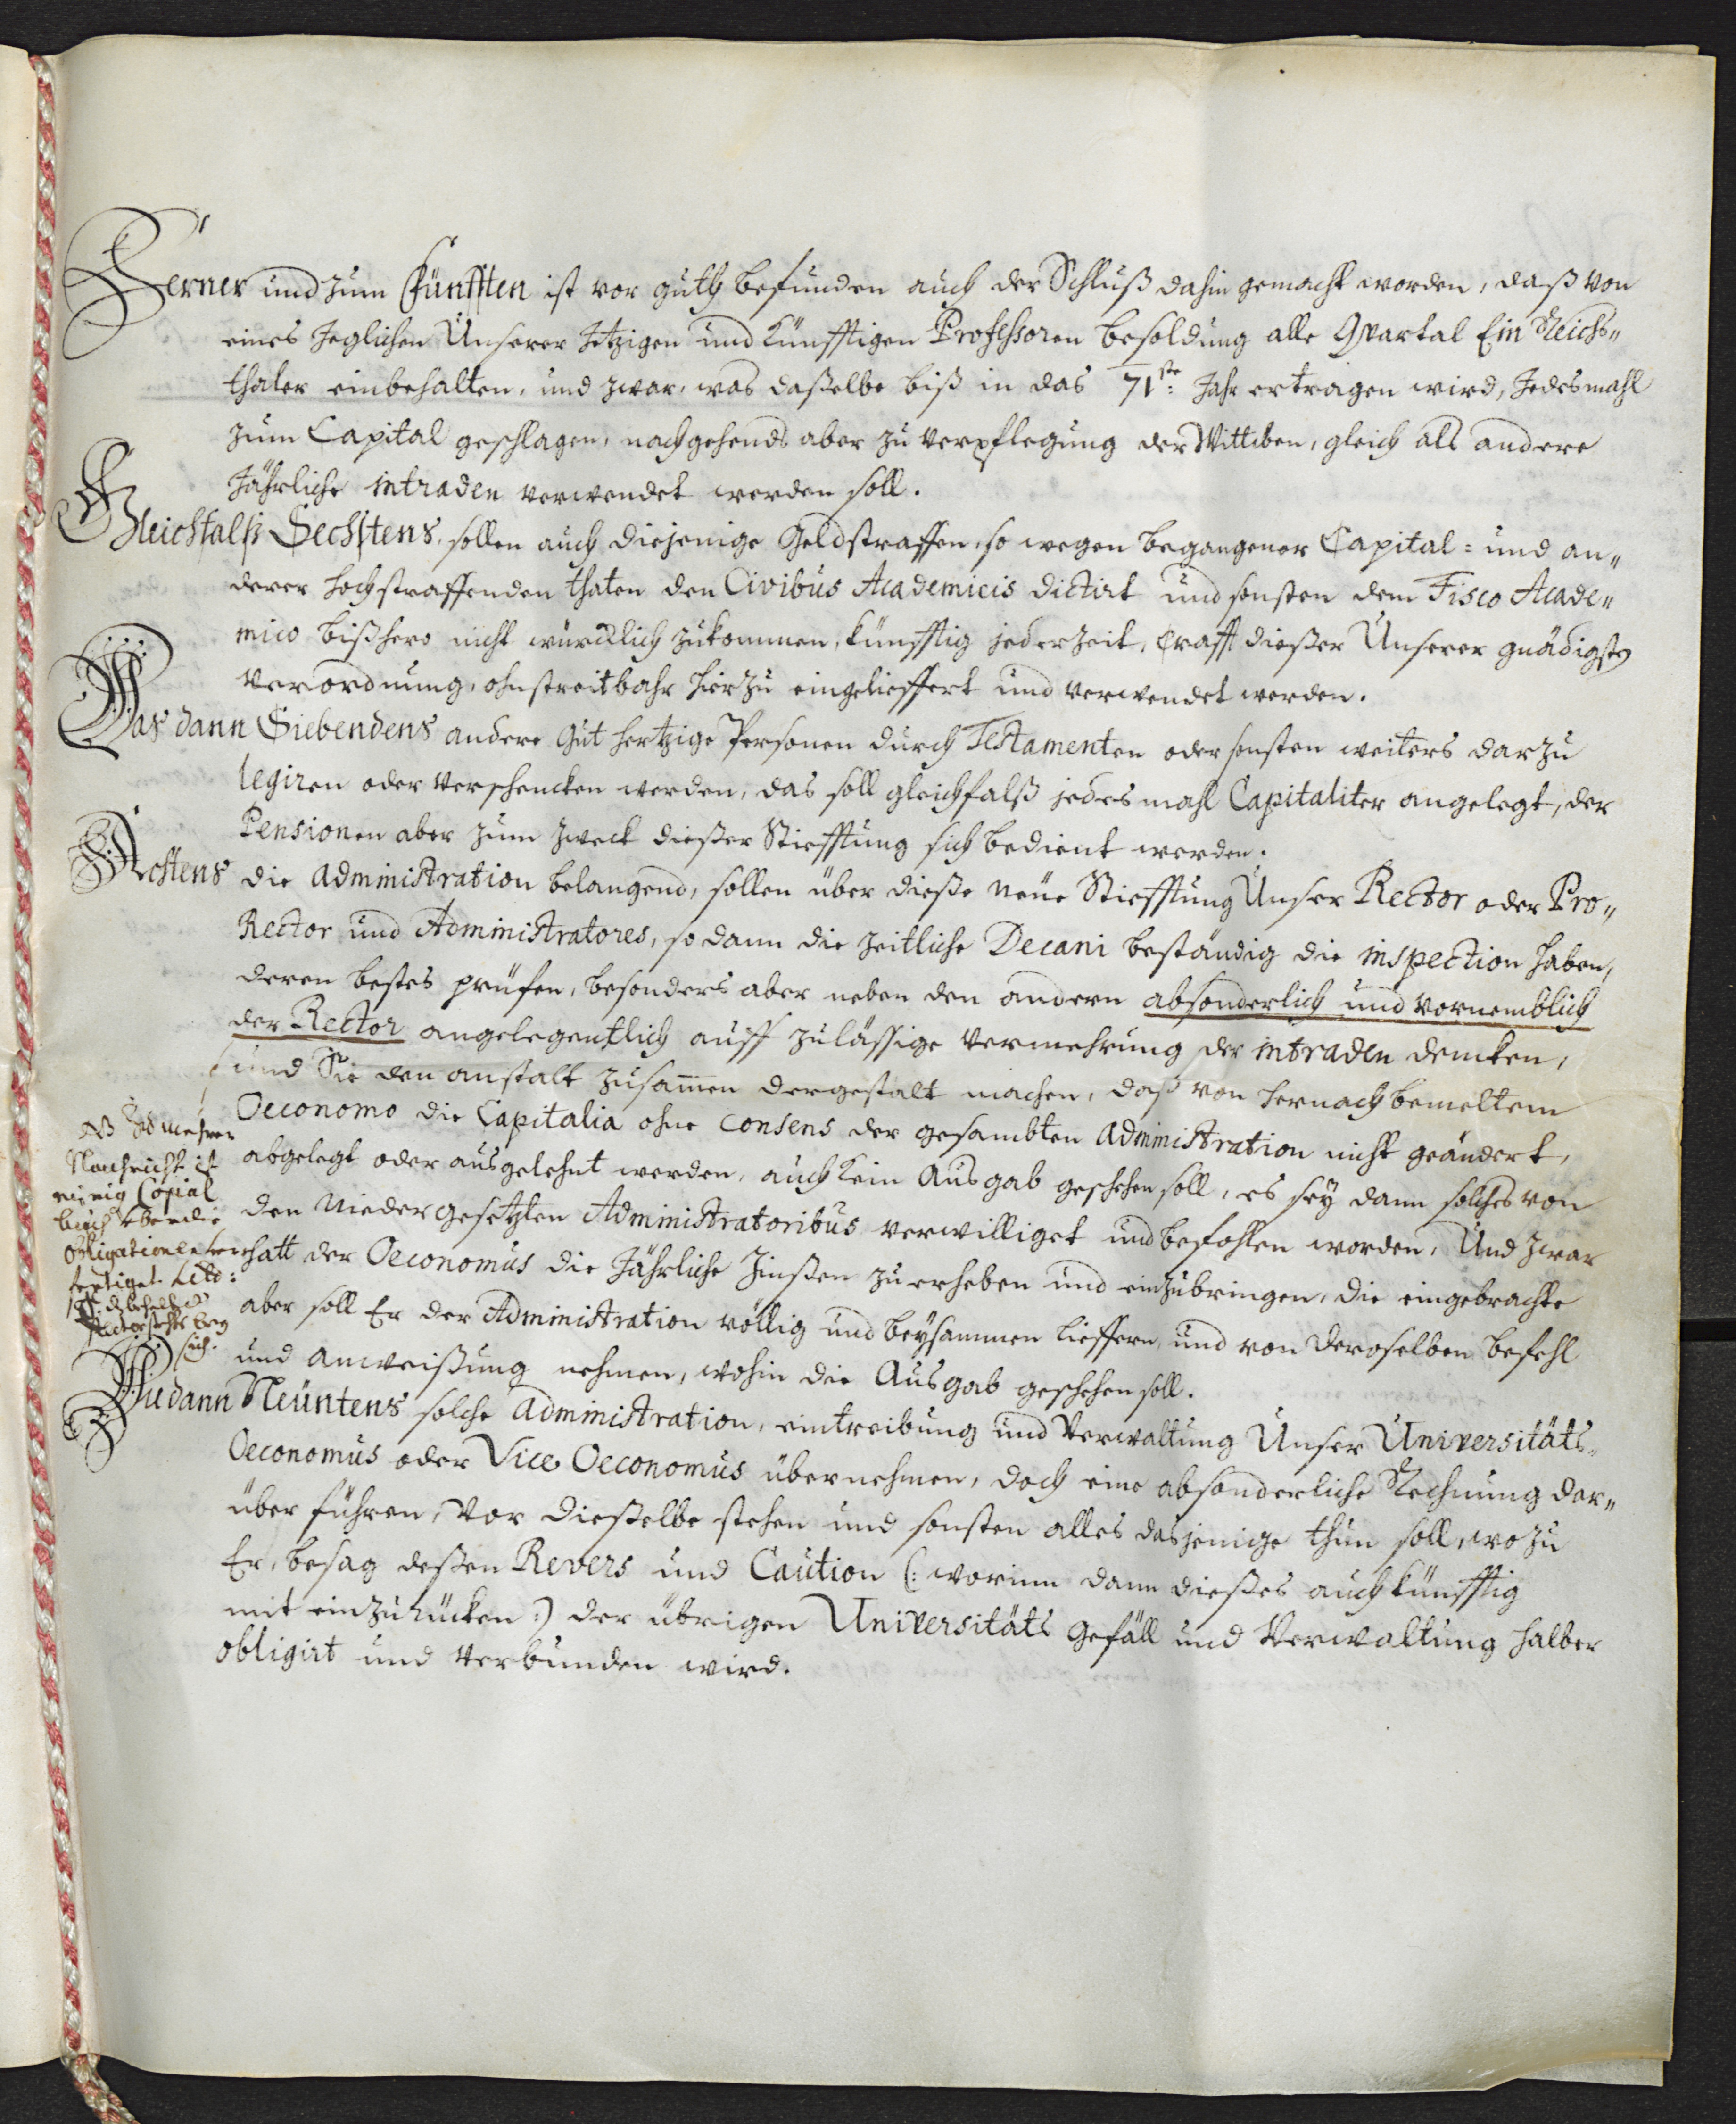 Ferner und zum Fünfften ist vor guth befunden auch der Schluß dahin gemacht worden, daß von
eines Jeglichen Unserer Jetzigen und künfftigen Professoren besoldung alle Quartal Ein Reichs„
thaler einbehalten, und zwar, was daßelbe biß in das 71ste: Jahr ertragen wird, Jedesmahl
zum Capital geschlagen, nachgehends aber zu verpflegung der Wittiben, gleich als andere
Jährliche intraden verwendet werden soll.
Gleichfalß Sechstens, sollen auch diejenige Geldstraffen, so wegen begangener Capital= und an„
derer hochstraffenden thaten den Civibus Academicis dictirt und sonsten dem Fisco Acade„
mico bißhero nicht würcklich zukommen, künfftig jederzeit, crafft dießer Unserer gnädigsten
verordnung, ohnstreitbahr hierzu eingelieffert und verwendet werden.
Was dann Siebendens andere gut hertzige Personen durch Testamenten oder sonsten weiters darzu
legiren oder verschencken werden, das soll gleichfalß jedesmahl Capitaliter angelegt, der
Pensionen aber zum zweck dießer Stiefftung sich bedient werden.
Achtens die administration belangend, sollen über dieße neüe Stiefftung Unser Rector oder Pro„
Rector und Administratores, so dann die zeitliche Decani beständig die inspection haben,
deren bestes prüfen, besonders aber neben den andern absonderlich und vornemblich
der Rector angelegentlich auff zuläßige vermehrung der intraden dencken,
und Sie den anstalt zusammen dergestalt machen, daß von hernachbemeltem
Oeconomo die Capitalia ohne consens der gesambten administration nicht geändert,
abgelegt oder ausgelehnt werden, auch kein Ausgab geschehen soll, es sey dann solches von
den Niedergesetzten Administratoribus verwilliget und befohlen worden, Und zwar
hatt der Oeconomus die Jährliche Zinßen zu erheben und einzubringen, die eingebrachte
aber soll Er der Administration völlig und beysammen lieffern, und von deroselben befehl
und anweißung nehmen, wohin die Ausgab geschehen soll.
NB
Nachricht ist
Copial
buch über die
obligationen
fertiget
Wie dann Neüntens solche administration, eintreibung und Verwaltung Unser Universitäts-
Oeconomus oder Vice Oeconomus übernehmen, doch eine absonderliche Rechnung dar„
über führen, vor dieselbe stehen und sonsten alles dasjenige thun soll, wozu
Er, besag deßen Revers und Caution (: worinn dann dießes auch künfftig
mit einzurücken :) der übrigen Universitäts gefäll und Verwaltung halber
obligirt und verbunden wird.